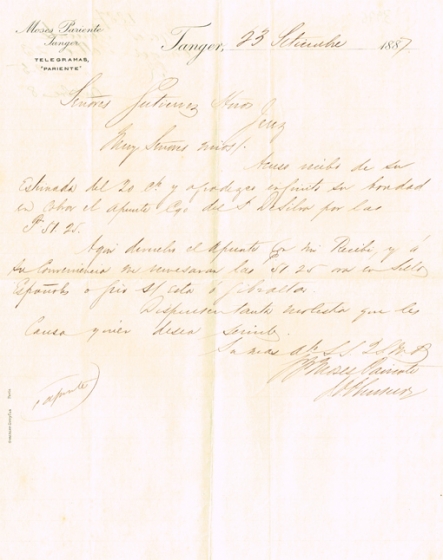 Moses Pariente
Tanger
TELEGRAMAS,
"PARIENTE"
Tanger, 23 Setiembre 1887
Señores Gutierrez Hnos
Jerez
Muy Señores mios:
Acuso recibo de su
Estimada del 20 y agradezco infinito su bondad
en Cobrar el apunte del S. DeSilva por las
51.25.
Aqui devuelvo el apunte mi Recibi, y á
su Conveniencia me remesaran las 51.25 en Sellos
Españoles o Giro s/ esta ó Gibraltar.
Dispensen tanta molestia que les
Causa quien desea servirle.
Su mas S.S. Q.B.S.M.
Moses Pariente
(apunte)